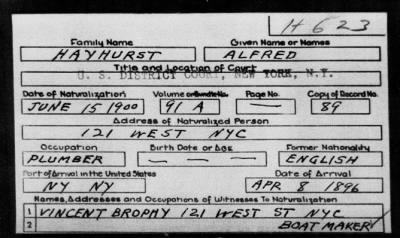 H 623
Family Name Given Name or Names
HAYHURST ALFRED
Title and Location of Court
U. S. DISTRICT COURT, NEW YORK, N.Y.
Date of Naturalization Volume or Bundle No. Page No. Copy of Record No.
JUNE 15 1900 91 A — 89
Address of Naturalized Person
121 WEST NYC
Occupation Birth Date or Age Former Nationality
PLUMBER — — — ENGLISH
Port of Arrival in the United States Date of Arrival
NY NY APR 8 1896
Names, Addresses and Occupations of Witnesses To Naturalization
1 VINCENT BROPHY 121 WEST ST NYC
2 BOAT MAKER